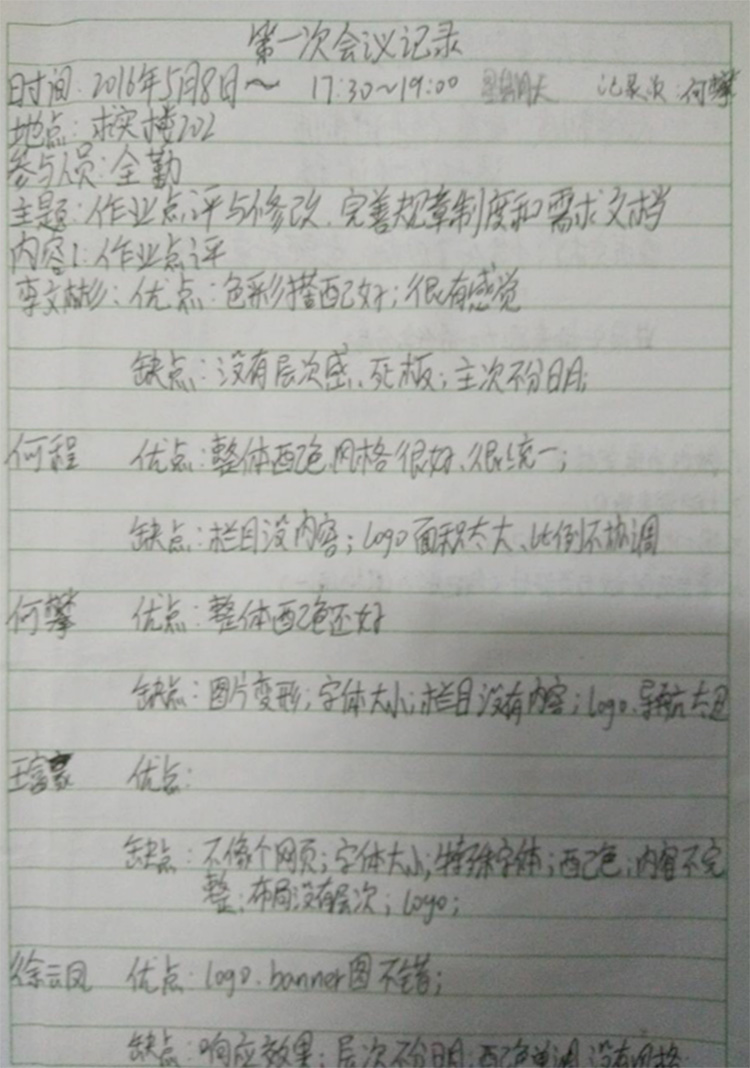 第一次会议记录
时间:2016年5月8日～ 17:30～19:00 星期天 记录次:何攀
地点:求实楼202
参与人员:全勤
主题:作业点评与修改、完善规章制度和需求文档
内容1:作业点评
李文彬:优点:色彩搭配好;很有感觉
缺点:没有层次感、死板;主次不分明;
何程 优点:整体配色、风格很好、很统一;
缺点:栏目没内容;logo面积太大、比例不协调
何攀 优点:整体配色还好
缺点:图片变形;字体大小;栏目没有内容;logo、导航太
王富豪 优点:
缺点:不像个网页;字体大小;特殊字体;配色;内容不完
整;布局没有层次;logo;
徐云凤 优点:logo、banner图不错;
缺点:响应效果;层次不分明;配色单调、没有风格